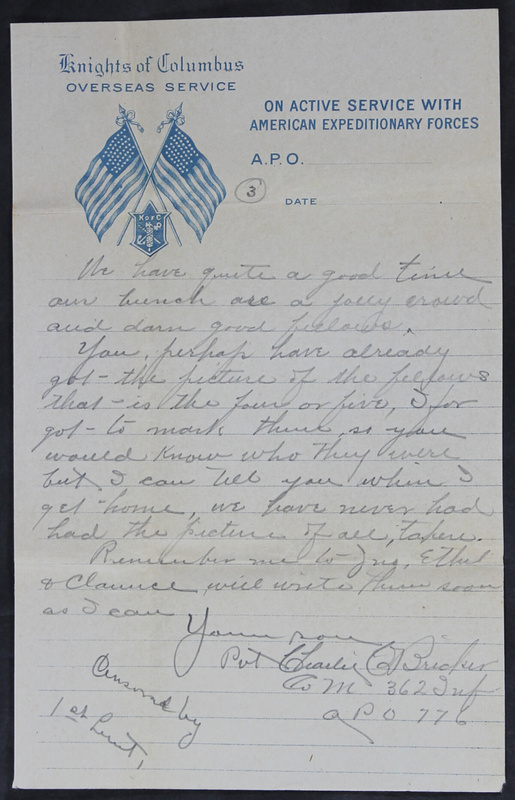 Knights of Columbus
OVERSEAS SERVICE
ON ACTIVE SERVICE WITH
AMERICAN EXPEDITIONARY FORCES
A.P.O.
3
DATE
K of C
We have quite a good time
our bunch are a jolly crowd
and darn good fellows.
You, perhap have already
got - the picture of the fellows
that - is the four or five, I for
got - to mark them, so you
would know who they were
but I can tell you when I
get home, we have never had
had the picture of all, taken.
Remember me to Ethel
& Clarence will write them soon
as I can
Your son
Pvt Charlie Bricker
Co M 362 Inf
APO 776
Censored by
1st Lieut,